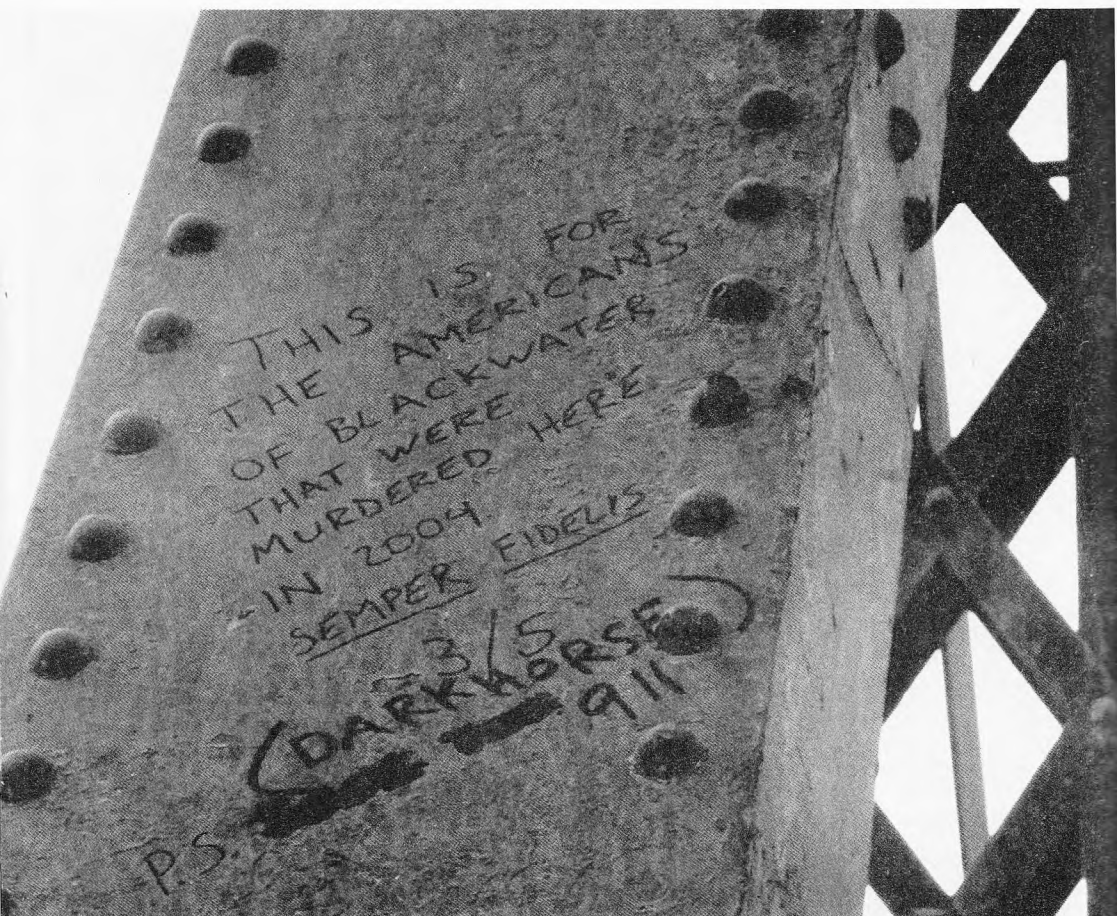 THIS IS FOR
THE AMERICANS
OF BLACKWATER
THAT WERE
MURDERED HERE
IN 2004
SEMPER FIDELIS
3/5
(DARKHORSE)
911
P.S.